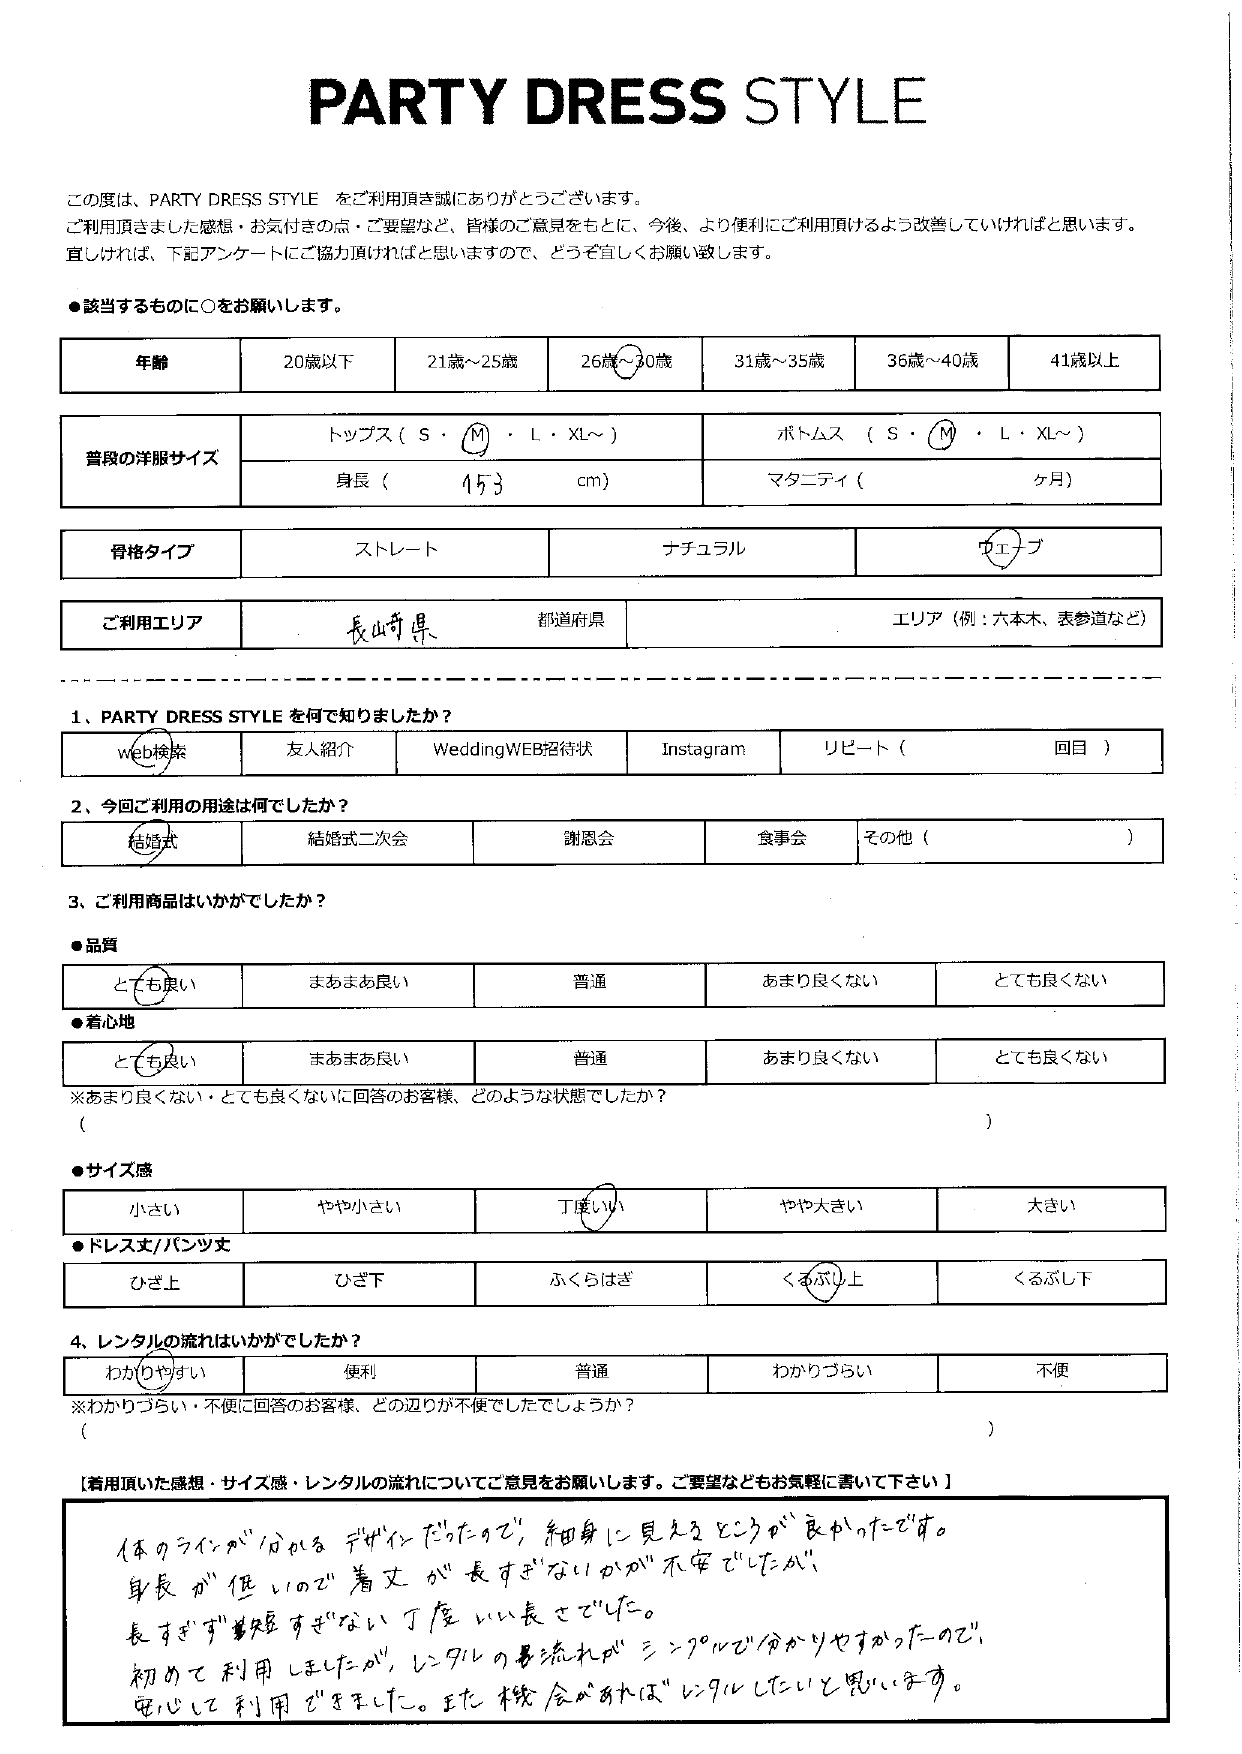 PARTY DRESS STYLE
この度は、PARTY DRESS STYLE をご利用頂き誠にありがとうございます。
ご利用頂きました感想・お気付きの点・ご要望など、皆様のご意見をもとに、今後、より便利にご利用頂けるよう改善していければと思います。
宜しければ、下記アンケートにご協力頂ければと思いますので、どうぞ宜しくお願い致します。
●該当するものに○をお願いします。
年齢 20歳以下 21歳～25歳 26歳～30歳 31歳～35歳 36歳～40歳 41歳以上
普段の洋服サイズ トップス ( S ・ M ・ L ・ XL～ ) ボトムス ( S ・ M ・ L ・ XL～ )
身長 ( 153 cm) マタニティ ( ケ月)
骨格タイプ ストレート ナチュラル ウェーブ
ご利用エリア 長崎県 都道府県 エリア（例：六本木、表参道など）
1、PARTY DRESS STYLE を何で知りましたか？
web検索 友人紹介 WeddingWEB招待状 Instagram リピート ( 回目 )
2、今回ご利用の用途は何でしたか？
結婚式 結婚式二次会 謝恩会 食事会 その他 ( )
3、ご利用商品はいかがでしたか？
●品質
とても良い まあまあ良い 普通 あまり良くない とても良くない
●着心地
とても良い まあまあ良い 普通 あまり良くない とても良くない
※あまり良くない・とても良くないに回答のお客様、どのような状態でしたか？
( )
●サイズ感
小さい やや小さい 丁度いい やや大きい 大きい
●ドレス丈/パンツ丈
ひざ上 ひざ下 ふくらはぎ くるぶし上 くるぶし下
4、レンタルの流れはいかがでしたか？
わかりやすい 便利 普通 わかりづらい 不便
※わかりづらい・不便に回答のお客様、どの辺りが不便でしたでしょうか？
( )
【着用頂いた感想・サイズ感・レンタルの流れについてご意見をお願いします。ご要望などもお気軽に書いて下さい 】
体のラインが分かるデザインだったので、細身に見えるところが良かったです。
身長が低いので着丈が長すぎないかが不安でしたが、
長すぎず短すぎない丁度いい長さでした。
初めて利用しましたが、レンタルの流れがシンプルで分かりやすかったので、
安心して利用できました。また機会があればレンタルしたいと思います。